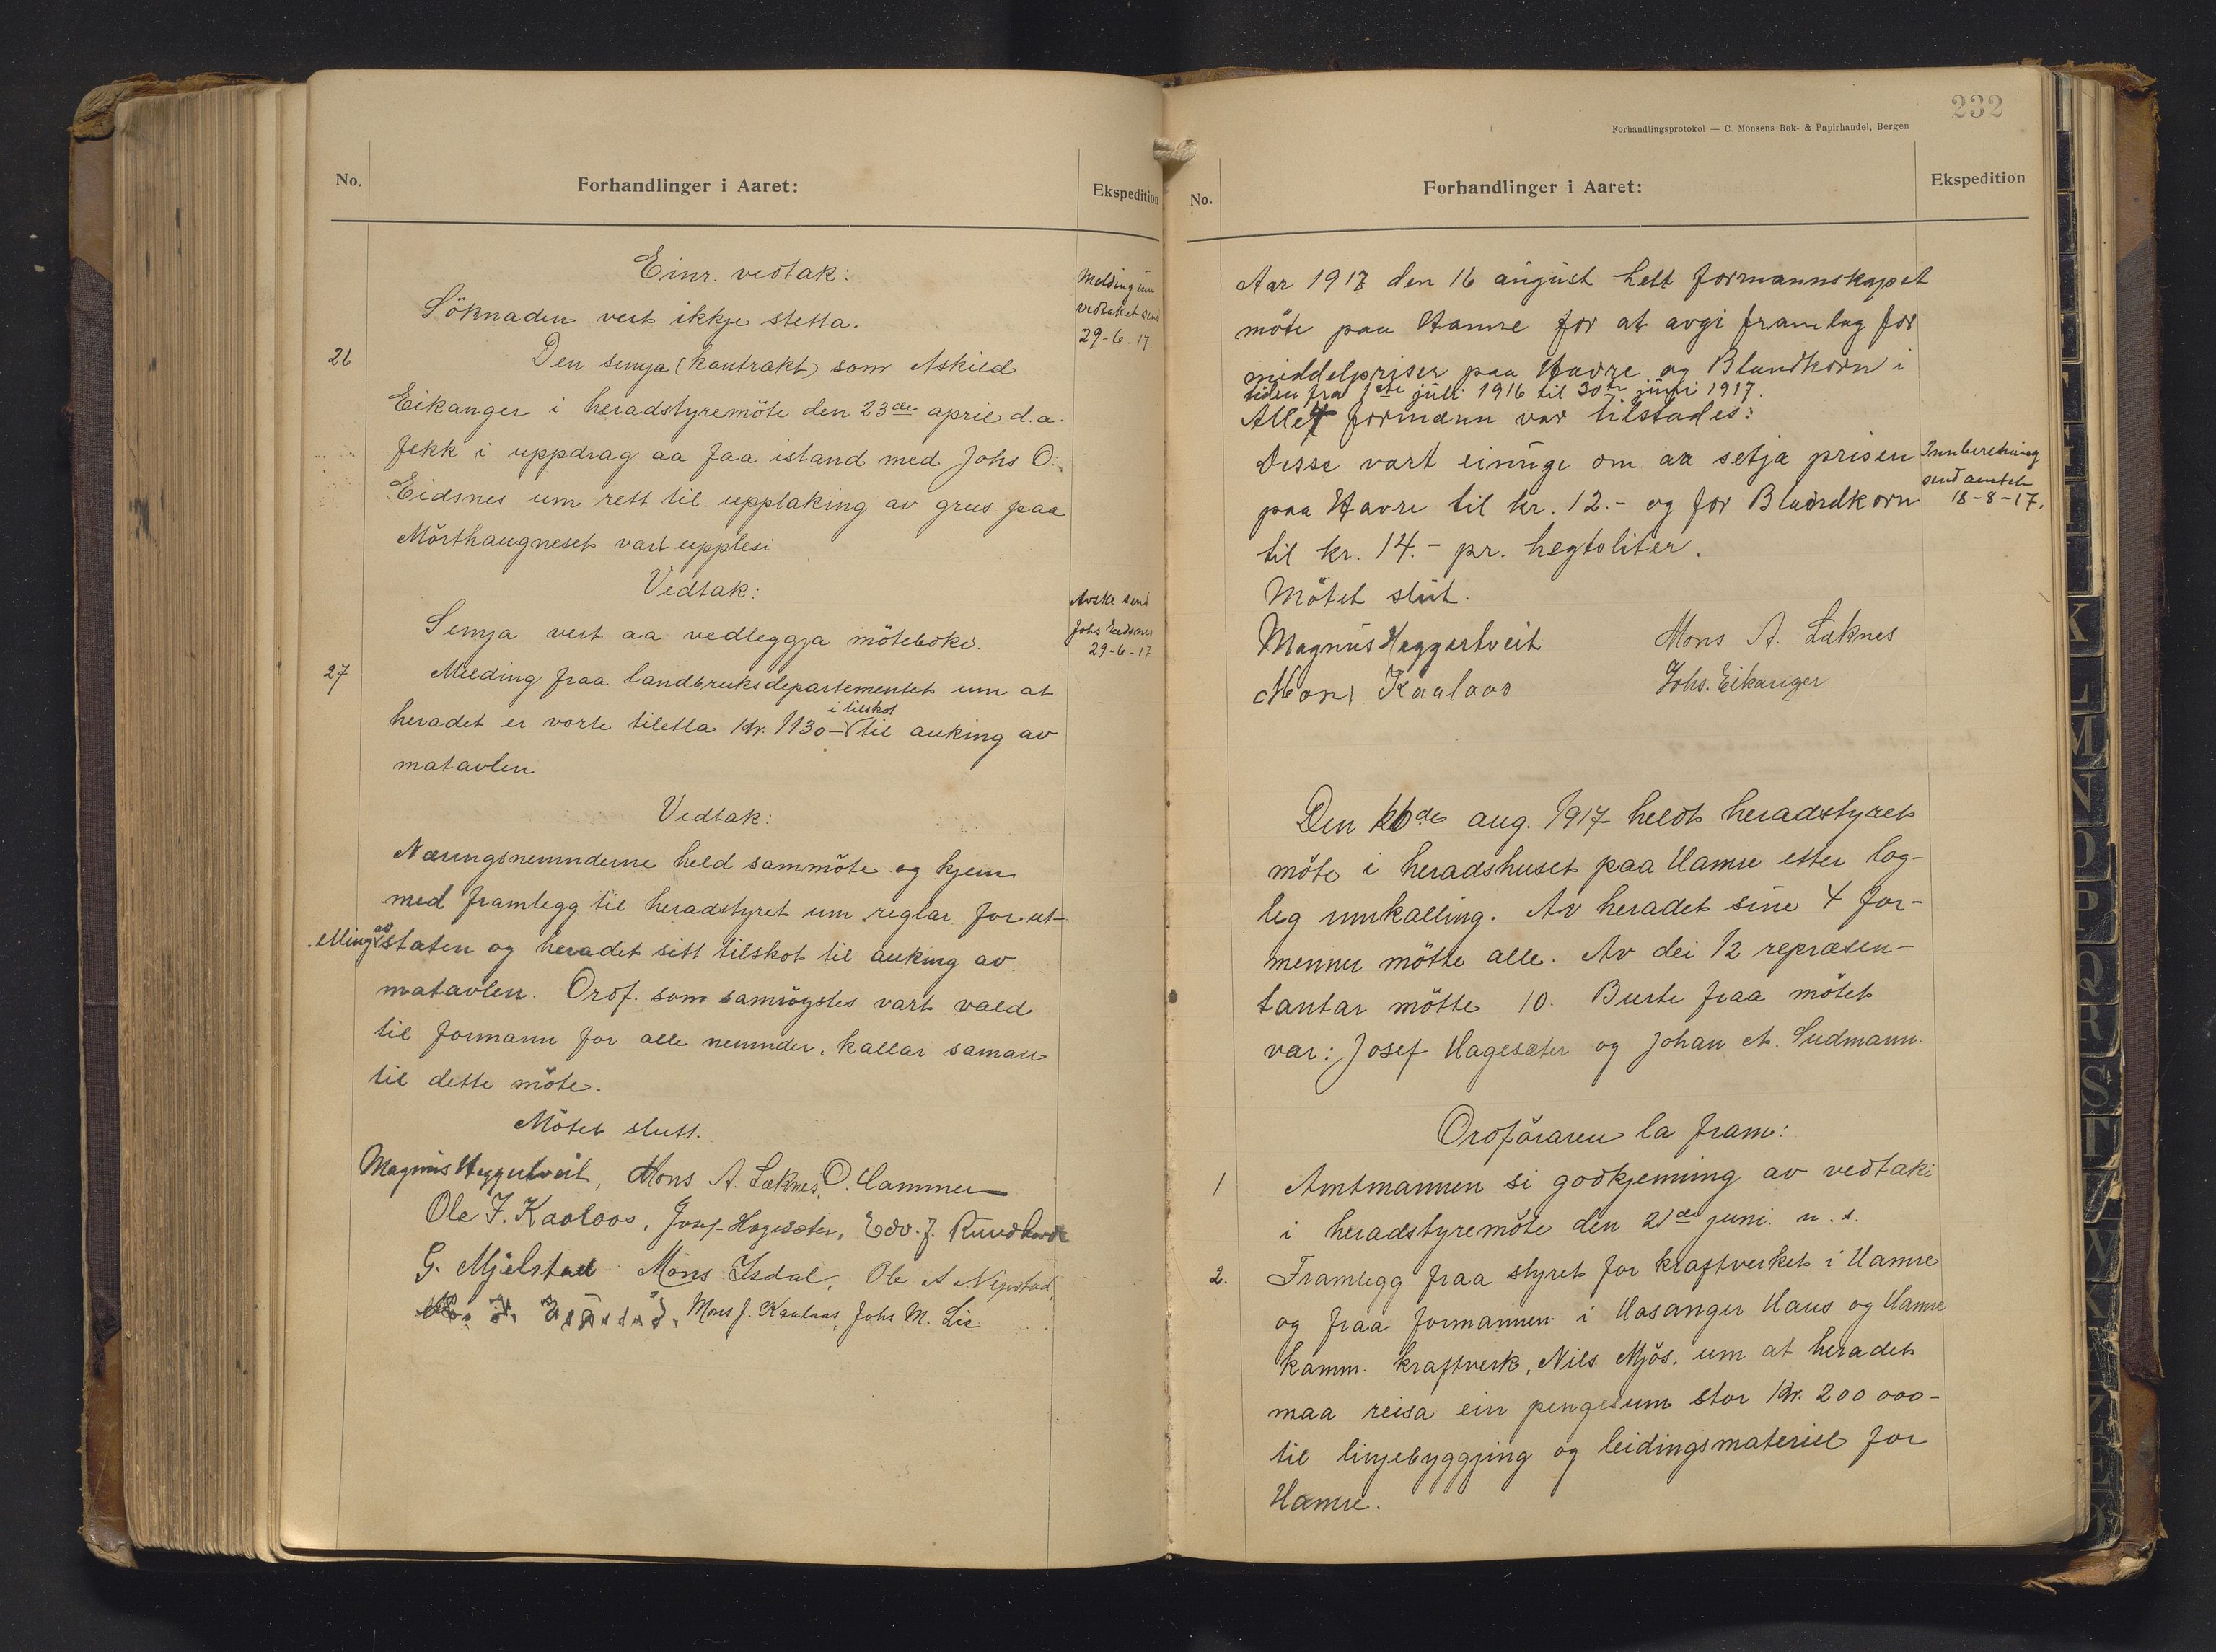 No.
Forhandlinger i Aaret:
Ekspedition
Einr. vedtak:
Söknaden vert ikkje stetta.
Melding um
vedtaket send
29-6-17.
26
Den semja (kontrakt) som Askild
Eikanger i heradstyremöte den 23de april d.a.
fekk i uppdrag aa faa istand med Johs O.
Eidsnes um rett til upptaking av grus paa
Mörthaugneset vart upplesi
Vedtak:
Semja vert aa vedleggja möteboki.
Avskr. send
Johs Eidsnes
29-6-17
27
Melding fraa landbruksdepartementet um at
heradet er vorte tiletla Kr. 1130- i tilskot til auking av
matavlen
Vedtak:
Næringsnemnderne held sammöte og kjem
med framlegg til heradstyret um reglar for ut-
etling av staten og heradet sitt tilskot til auking av
matavlen. Ordf. som samröystes vart vald
til formann for alle nemnder, kallar saman
til dette möte.
Mötet slutt.
Magnus Heggertveit, Mons A. Læknes, O. Hammer
Ole J. Kaalaas, Josef Hagesæter, Edv. J.
G. Mjelstad Mons Isdal, Ole A
Mons J. Kaalaas, Johs M. Lie
232
Forhandlingsprotokol — C. Monsens Bok- & Papirhandel, Bergen
No.
Forhandlinger i Aaret:
Ekspedition
Aar 1917 den 16 august helt formannskapet
möte paa Hamre for at avgi framlag for
middelpriser paa Havre og Blandkorn i
tiden fra 1ste juli 1916 til 30te juni 1917.
Alle 4 formænn var tilstades:
Disse vart einige om aa setja prisen
paa Havre til kr. 12.- og for Blandkorn
til kr. 14.- pr. hegtoliter.
Innberetning
send amtet
18-8-17.
Mötet slut.
Magnus Heggertveit Mons A. Læknes
Mons Kaalaas Johs. Eikanger
Den 26de aug. 1917 heldt heradstyret
möte i heradshuset paa Hamre etter log-
leg innkalling. Av heradet sine 4 for-
menner mötte alle. Av dei 12 repræsen-
tantar mötte 10. Burte fraa mötet
var: Josef Hagesæter og Johan A. Sudmann.
Ordföraren la fram:
1
Amtmannen si godkjenning av vedtaki
i heradstyremöte den 21de juni n. s.
2.
Framlegg fraa styret for kraftverket i Hamre
og fraa formannen i Hosanger Haus og Hamre
komm. kraftverk, Nils Mjös, um at heradet
maa reisa ein pengesum stor Kr. 200 000-
til linjebyggjing og leidingsmateriel for
Hamre.
K
L
M
N
O
P
Q
R
S
T